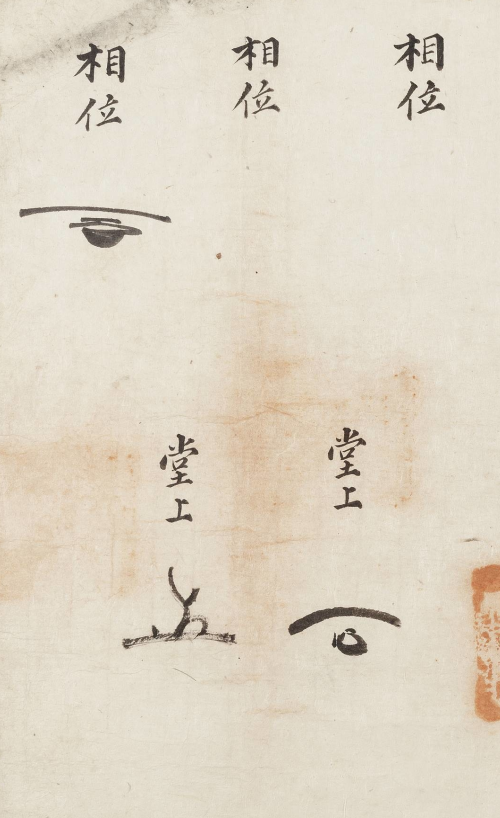 相位
相位
相位
堂上
堂上